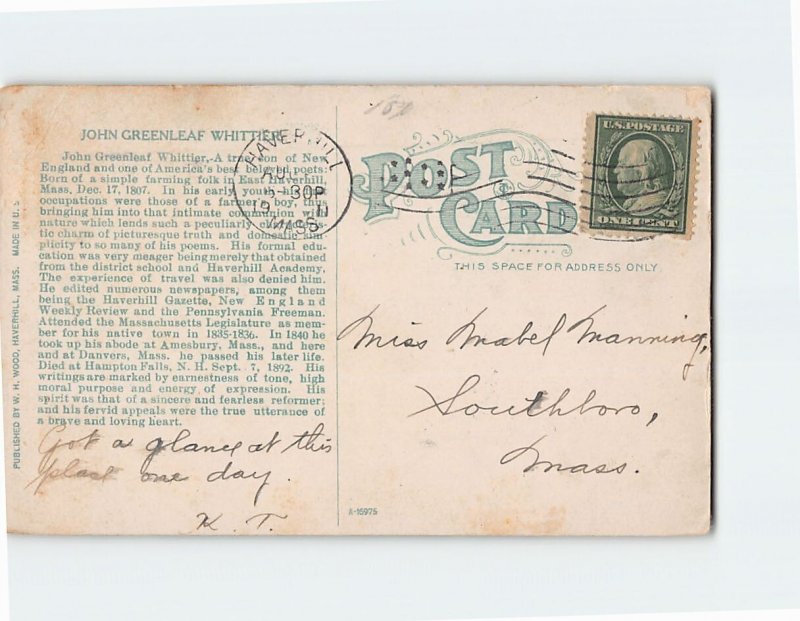 JOHN GREENLEAF WHITTIER
John Greenleaf Whittier,-A true son of New
England and one of America's best beloved poets:
Born of a simple farming folk in East Haverhill,
Mass, Dec. 17, 1807. In his early youth his
occupations were those of a farmer's boy, thus
bringing him into that intimate communion with
nature which lends such a peculiarly
tic charm of picturesque truth and domestic sim-
plicity to so many of his poems. His formal edu-
cation was very meager being merely that obtained
from the district school and Haverhill Academy.
The experience of travel was also denied him.
He edited numerous newspapers, among them
being the Haverhill Gazette, New England
Weekly Review and the Pennsylvania Freeman.
Attended the Massachusetts Legislature as mem-
ber for his native town in 1835-1836. In 1840 he
took up his abode at Amesbury, Mass., and here
and at Danvers, Mass. he passed his later life.
Died at Hampton Falls, N. H. Sept. 7, 1892. His
writings are marked by earnestness of tone, high
moral purpose and energy of expression. His
spirit was that of a sincere and fearless reformer;
and his fervid appeals were the true utterance of
a brave and loving heart.
Got a glance at this
place one day.
K. T.
PUBLISHED BY W. H. WOOD, HAVERHILL, MASS. MADE IN U. S
HAVERHILL
30P
MASS
POST
CARD
THIS SPACE FOR ADDRESS ONLY
U.S. POSTAGE
ONE CENT
Miss Mabel Manning,
Southboro,
Mass.
A-16975